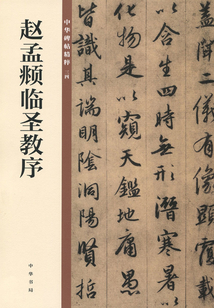 中华碑帖精粹
赵孟頫临圣教序
中华书局
以含生四時無形潛寒暑以
化物是以窺天鑑地庸愚
皆識其端明陰洞陽賢哲